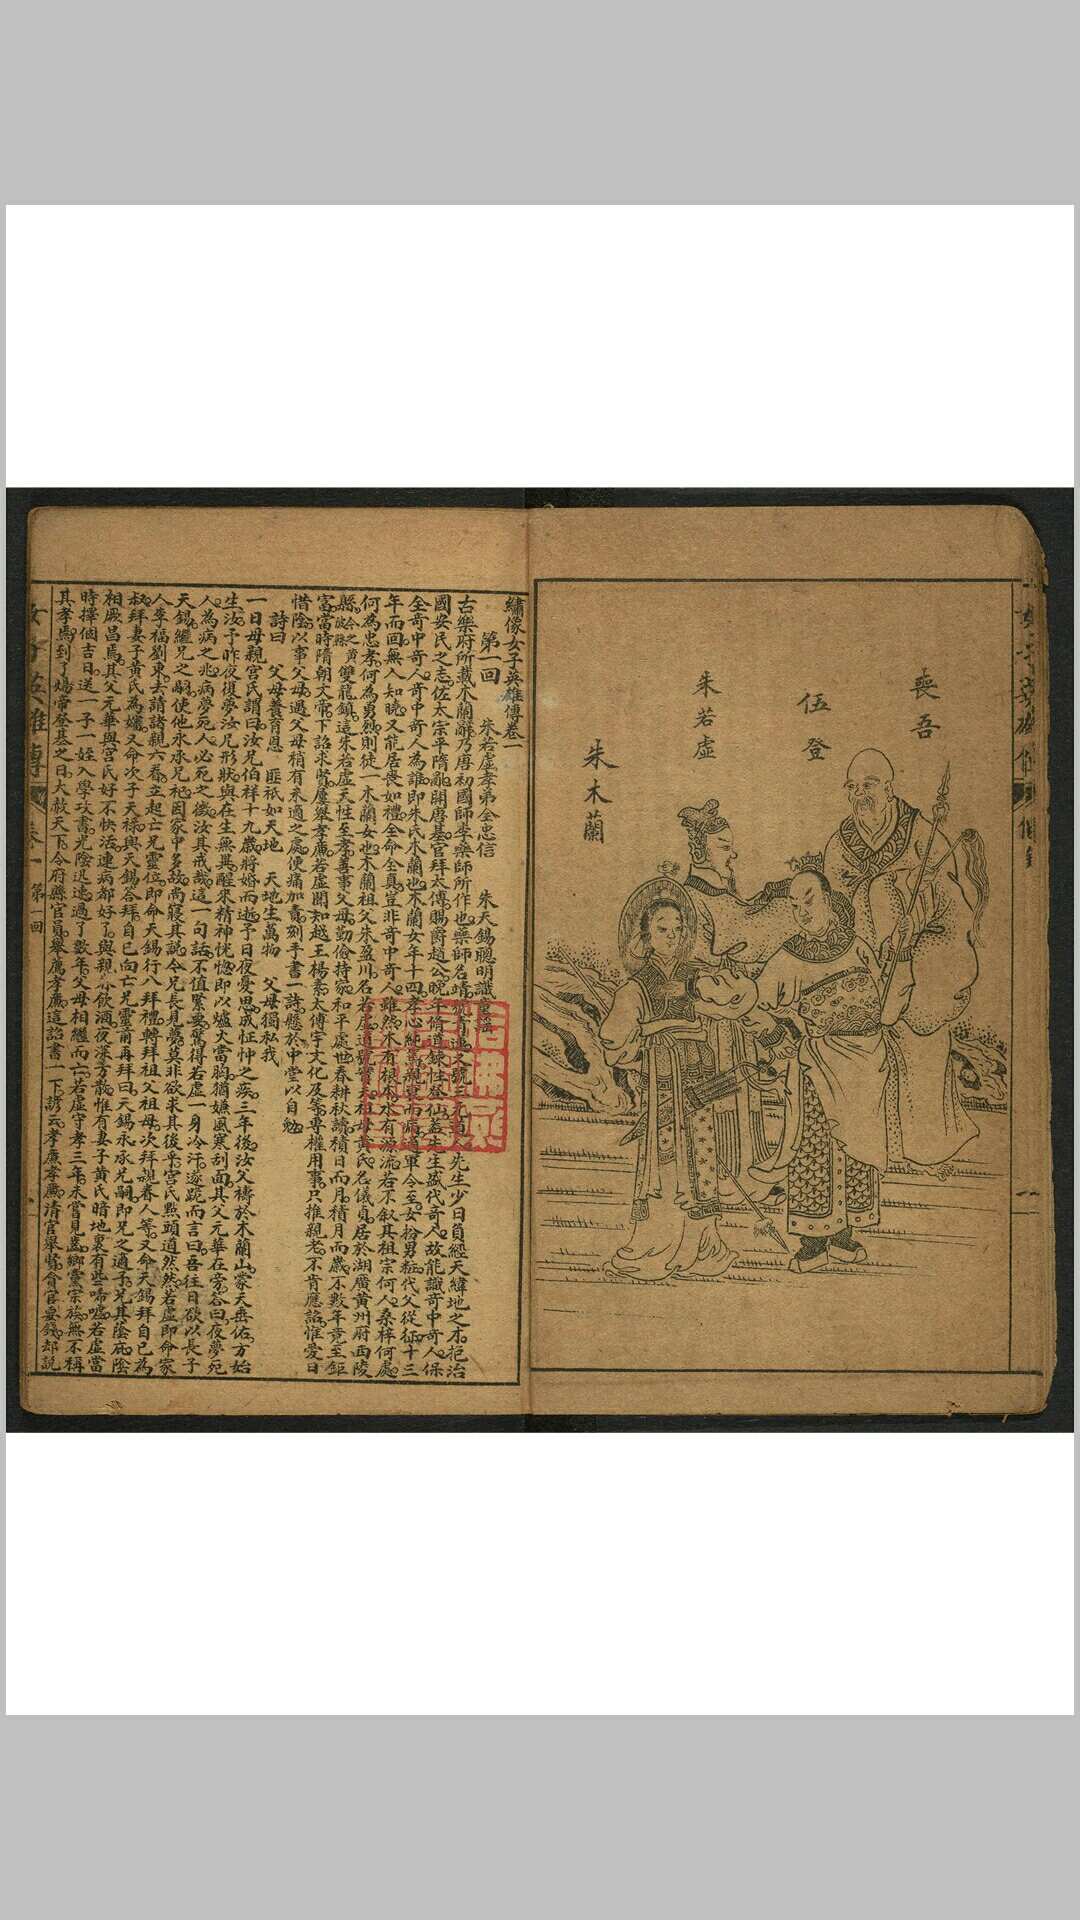 喪吾
伍登
朱若虛
朱木蘭
繡像女子英雄傳卷一
第一回　朱若虛孝弟全忠信　朱天錫聰明識童謠
古樂府所載木蘭辭乃唐初國師李藥師所作也藥師名靖
先生少日負經天緯地之才抱治
國安民之志佐太宗平隋亂開唐基官拜太傅賜爵趙公晚年修道鍊性登仙蓋生生盛代奇人故能識奇中奇人保
全奇中奇人奇中奇人為誰即朱氏木蘭也木蘭女年十四孝心純篤
軍令至女扮男粧代父從征十三
年而回無人知曉又能居喪如禮全命全真豈非奇中奇人雖然木有根本水有源流若不敘其祖宗何人桑梓何處
何為忠孝何為勇烈則徒一木蘭女也木蘭祖父朱盈川名若虛道號實夫祖母黃氏名儀貞居於湖廣黃州府西陵
縣今之黃陂縣雙龍鎮這朱若虛天性至孝善事父母勤儉持家和平處世春耕秋讀積日而月積月而歲不數年竟至鉅
富當時隋朝文帝下詔求賢屢舉孝廉若虛聞知越王楊素太傅宇文化及等專權用事只推親老不肯應詔惟愛日
惜陰以事父母過父母稍有未適之處便痛加責刻手書一詩懸於中堂以自勉
詩曰　父母養育恩　匪祇如天地　天地生萬物　父母獨私我
一日母親宮氏謂曰汝兄伯祥十九歲將婚而逝予日夜憂思成怔忡之疾三年後汝父禱於木蘭山蒙天垂佑方始
生汝予昨夜復夢汝兄形狀與在生無異醒來精神恍惚即以爐火當胸猶嫌風寒刮面其父元華在旁答曰夜夢死
人為病之兆病夢死人必死之徵汝其戒哉這一句話不值緊要驚得若虛一身冷汗遂跪而言曰吾往日欲以長子
天錫繼兄之嗣使他永承兄祀因家中多故尚寢其說今兄長見夢莫非欲求其後乎宮氏點頭道然然若虛即命家
人李福劉東去請諸親六眷立起亡兄靈位即命天錫行八拜禮轉拜祖父祖母次拜親眷人等又命天錫拜自己為
叔拜妻子黃氏為嬸又命次子天祿與天錫答拜自己向亡兄靈前再拜曰天錫永承兄嗣即兄之適子兄其蔭庇陰
相厥昌焉其父元華與宮氏好不快活連病都好了與親眾飲酒夜深方散惟有妻子黃氏暗地裏有些啼噓若虛當
時擇個吉日送一子一姪入學攻書光陰迅速過了數年父母相繼而亡若虛守孝三年未嘗見齒鄉黨宗族無不稱
其孝焉到了煬帝登基之日大赦天下令府縣官員舉薦孝廉這詔書一下諺云孝廉孝廉清官舉賢貪官要錢却說
女子英雄傳　卷一　第一回